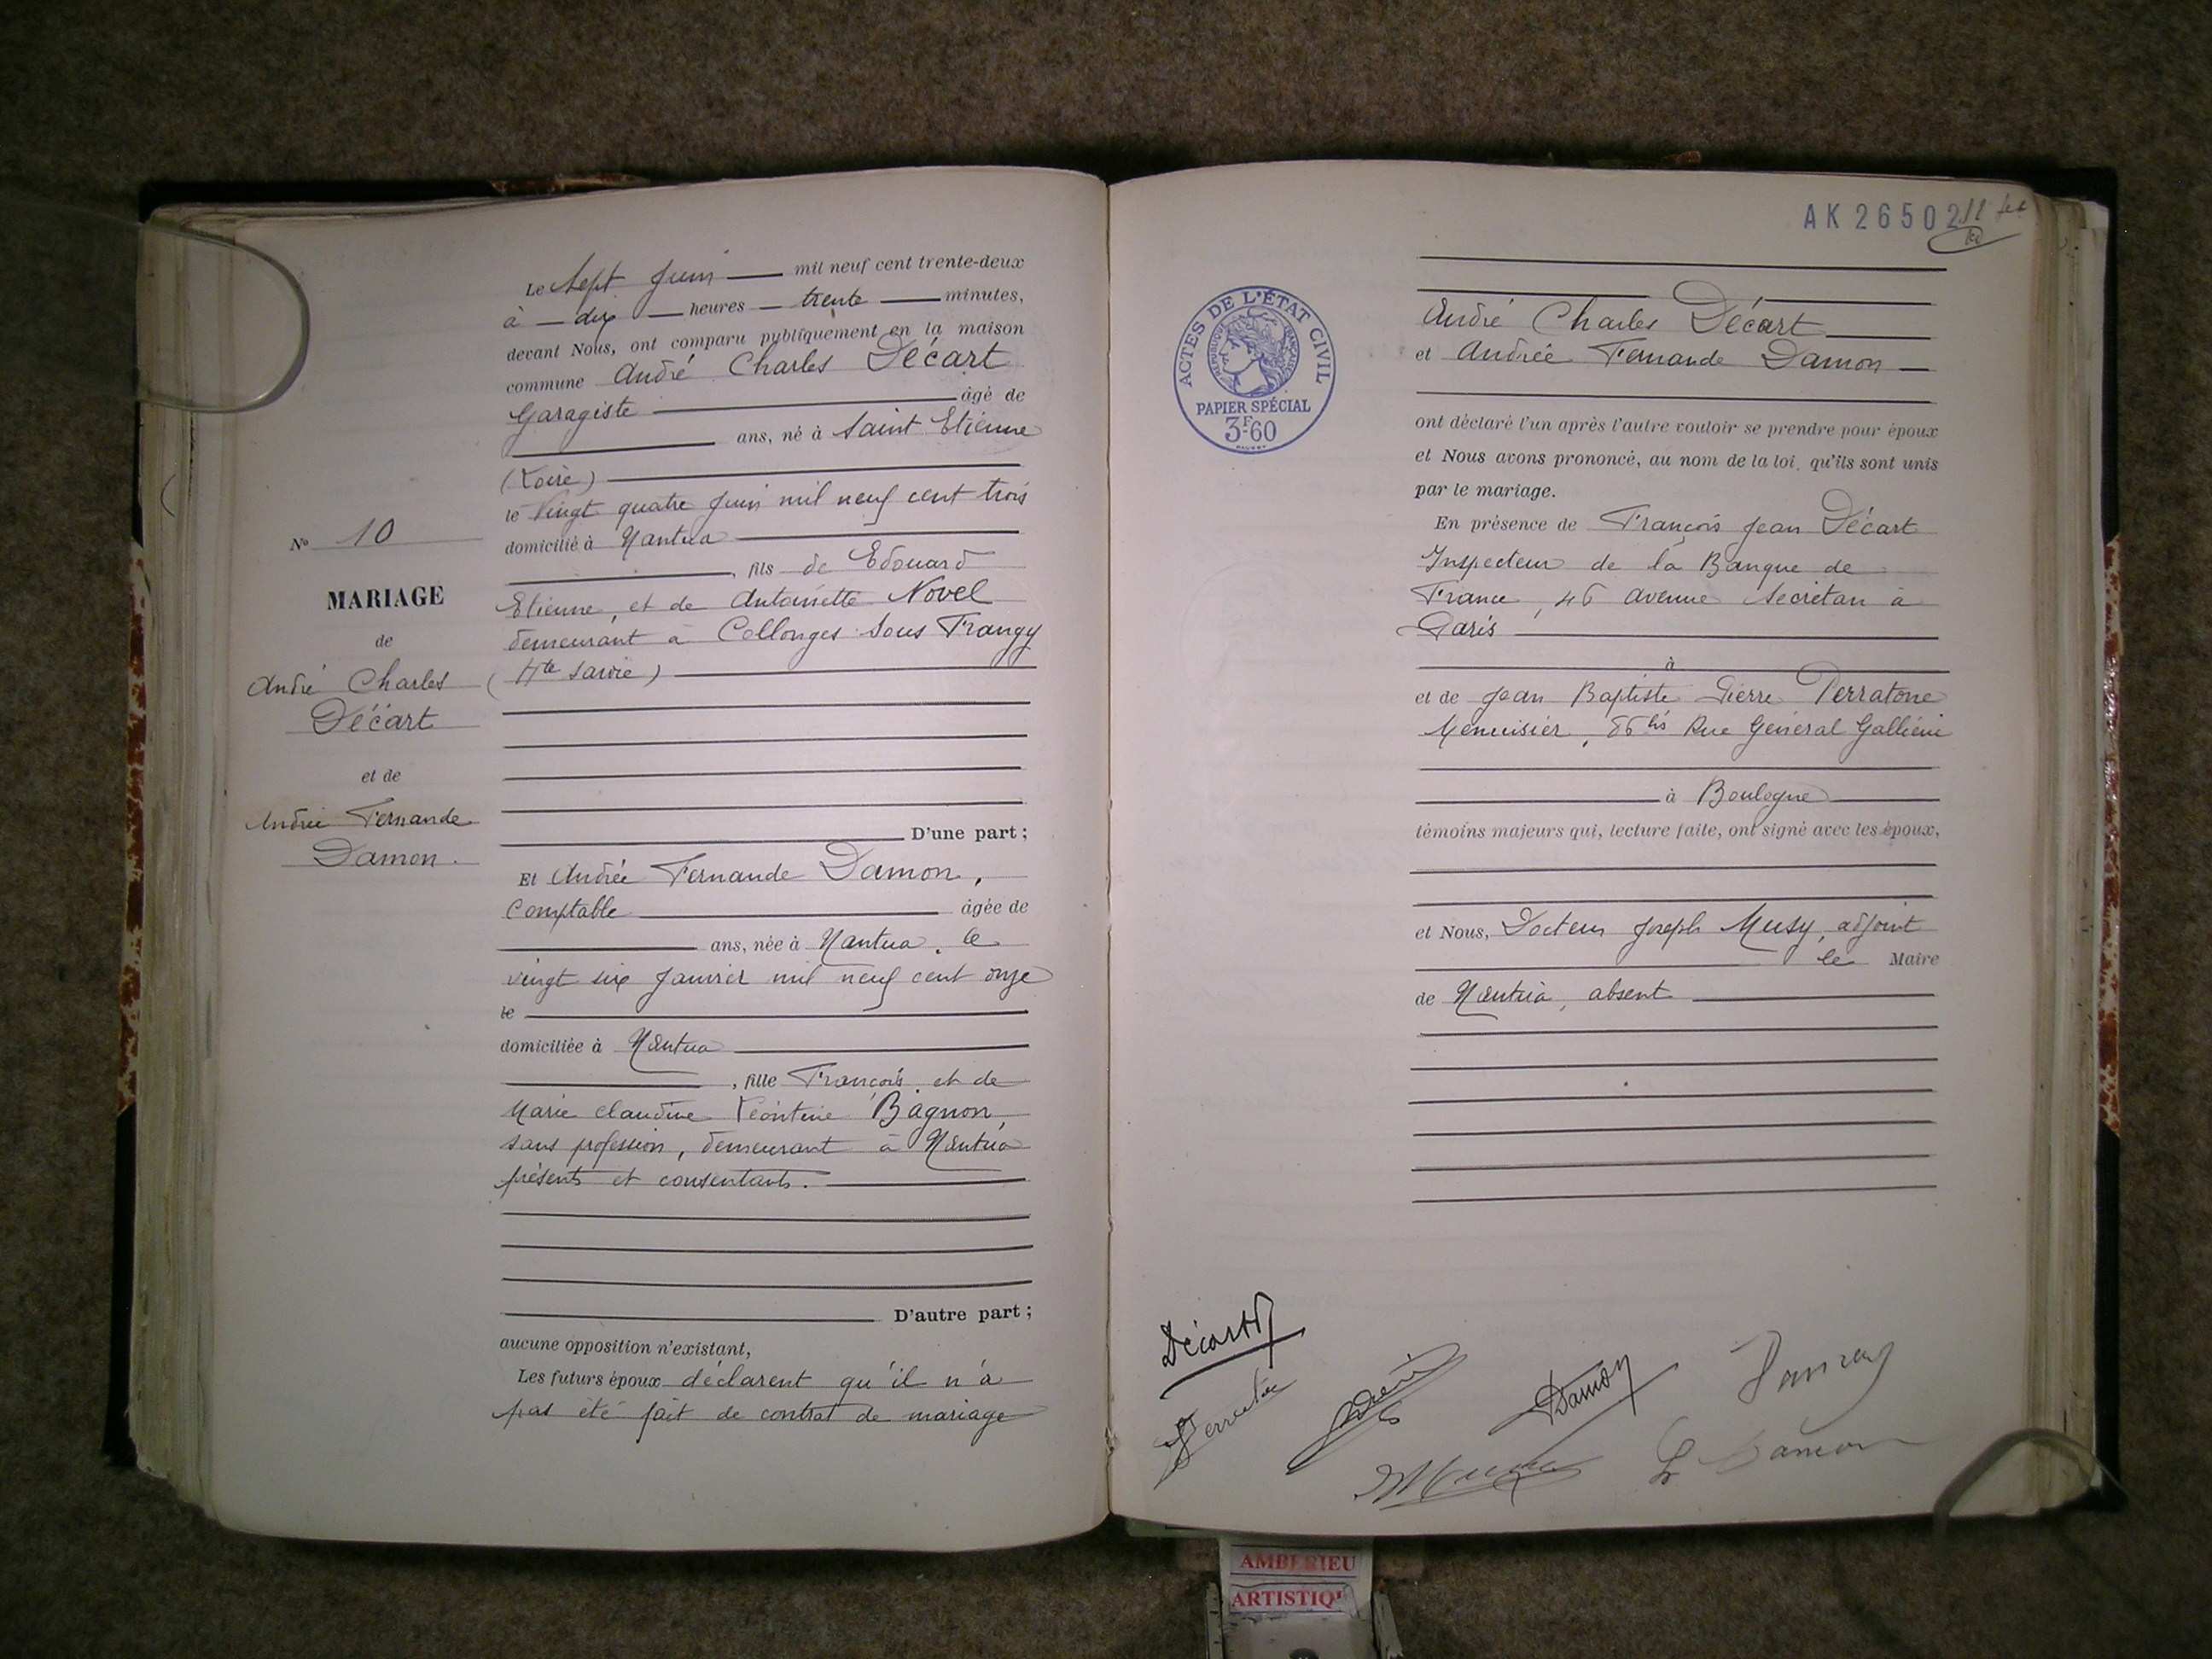 Le Sept Juin mil neuf cent trente-deux
à dix heures trente minutes,
devant Nous, ont comparu publiquement en la maison
commune André Charles Décart
Garagiste âgé de
ans, né à Saint Etienne
(Loire)
le vingt quatre Juin mil neuf cent trois
domicilié à Nantua
, fils de Edouard
Etienne, et de Antoinette Novel
demeurant à Collonges sous Frangy
(Hte Savoie)
D'une part ;
Et Andrée Fernande Damon,
Comptable âgée de
ans, née à Nantua, le
vingt six Janvier mil neuf cent onze
le
domiciliée à Nantua
, fille François et de
Marie Claudine Léontine Bagnon,
sans profession, demeurant à Nantua
présents et consentants.
D'autre part ;
aucune opposition n'existant,
Les futurs époux déclarent qu'il n'a
pas été fait de contrat de mariage
N° 10
MARIAGE
de
André Charles
Décart
et de
Andrée Fernande
Damon.
AK 26502
ACTES DE L'ÉTAT CIVIL
RÉPUBLIQUE FRANÇAISE
PAPIER SPÉCIAL
3F60
André Charles Décart
et Andrée Fernande Damon
ont déclaré l'un après l'autre vouloir se prendre pour époux
et Nous avons prononcé, au nom de la loi, qu'ils sont unis
par le mariage.
En présence de François Jean Décart
Inspecteur de la Banque de
France, 46 avenue Secrétan à
Paris
à
et de Jean Baptiste Pierre Perratone
Menuisier, 86 bis Rue Général Galliéni
à Boulogne
témoins majeurs qui, lecture faite, ont signé avec les époux,
et Nous, Docteur Joseph Musy, adjoint
le Maire
de Nantua, absent
Décart
Damon
Damon
AMBERIEU
ARTISTIQ